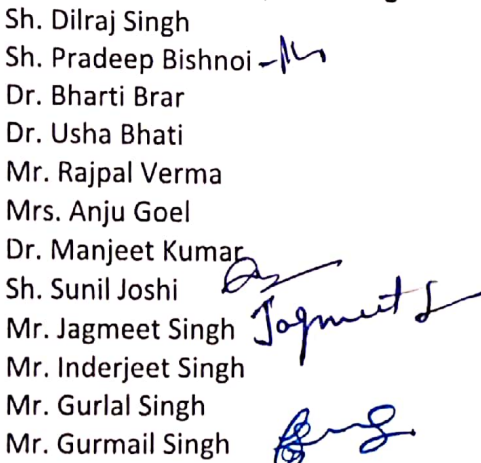 Sh. Dilraj Singh
Sh. Pradeep Bishnoi
Dr. Bharti Brar
Dr. Usha Bhati
Mr. Rajpal Verma
Mrs. Anju Goel
Dr. Manjeet Kumar
Sh. Sunil Joshi
Mr. Jagmeet Singh Jagmeet S
Mr. Inderjeet Singh
Mr. Gurlal Singh
Mr. Gurmail Singh